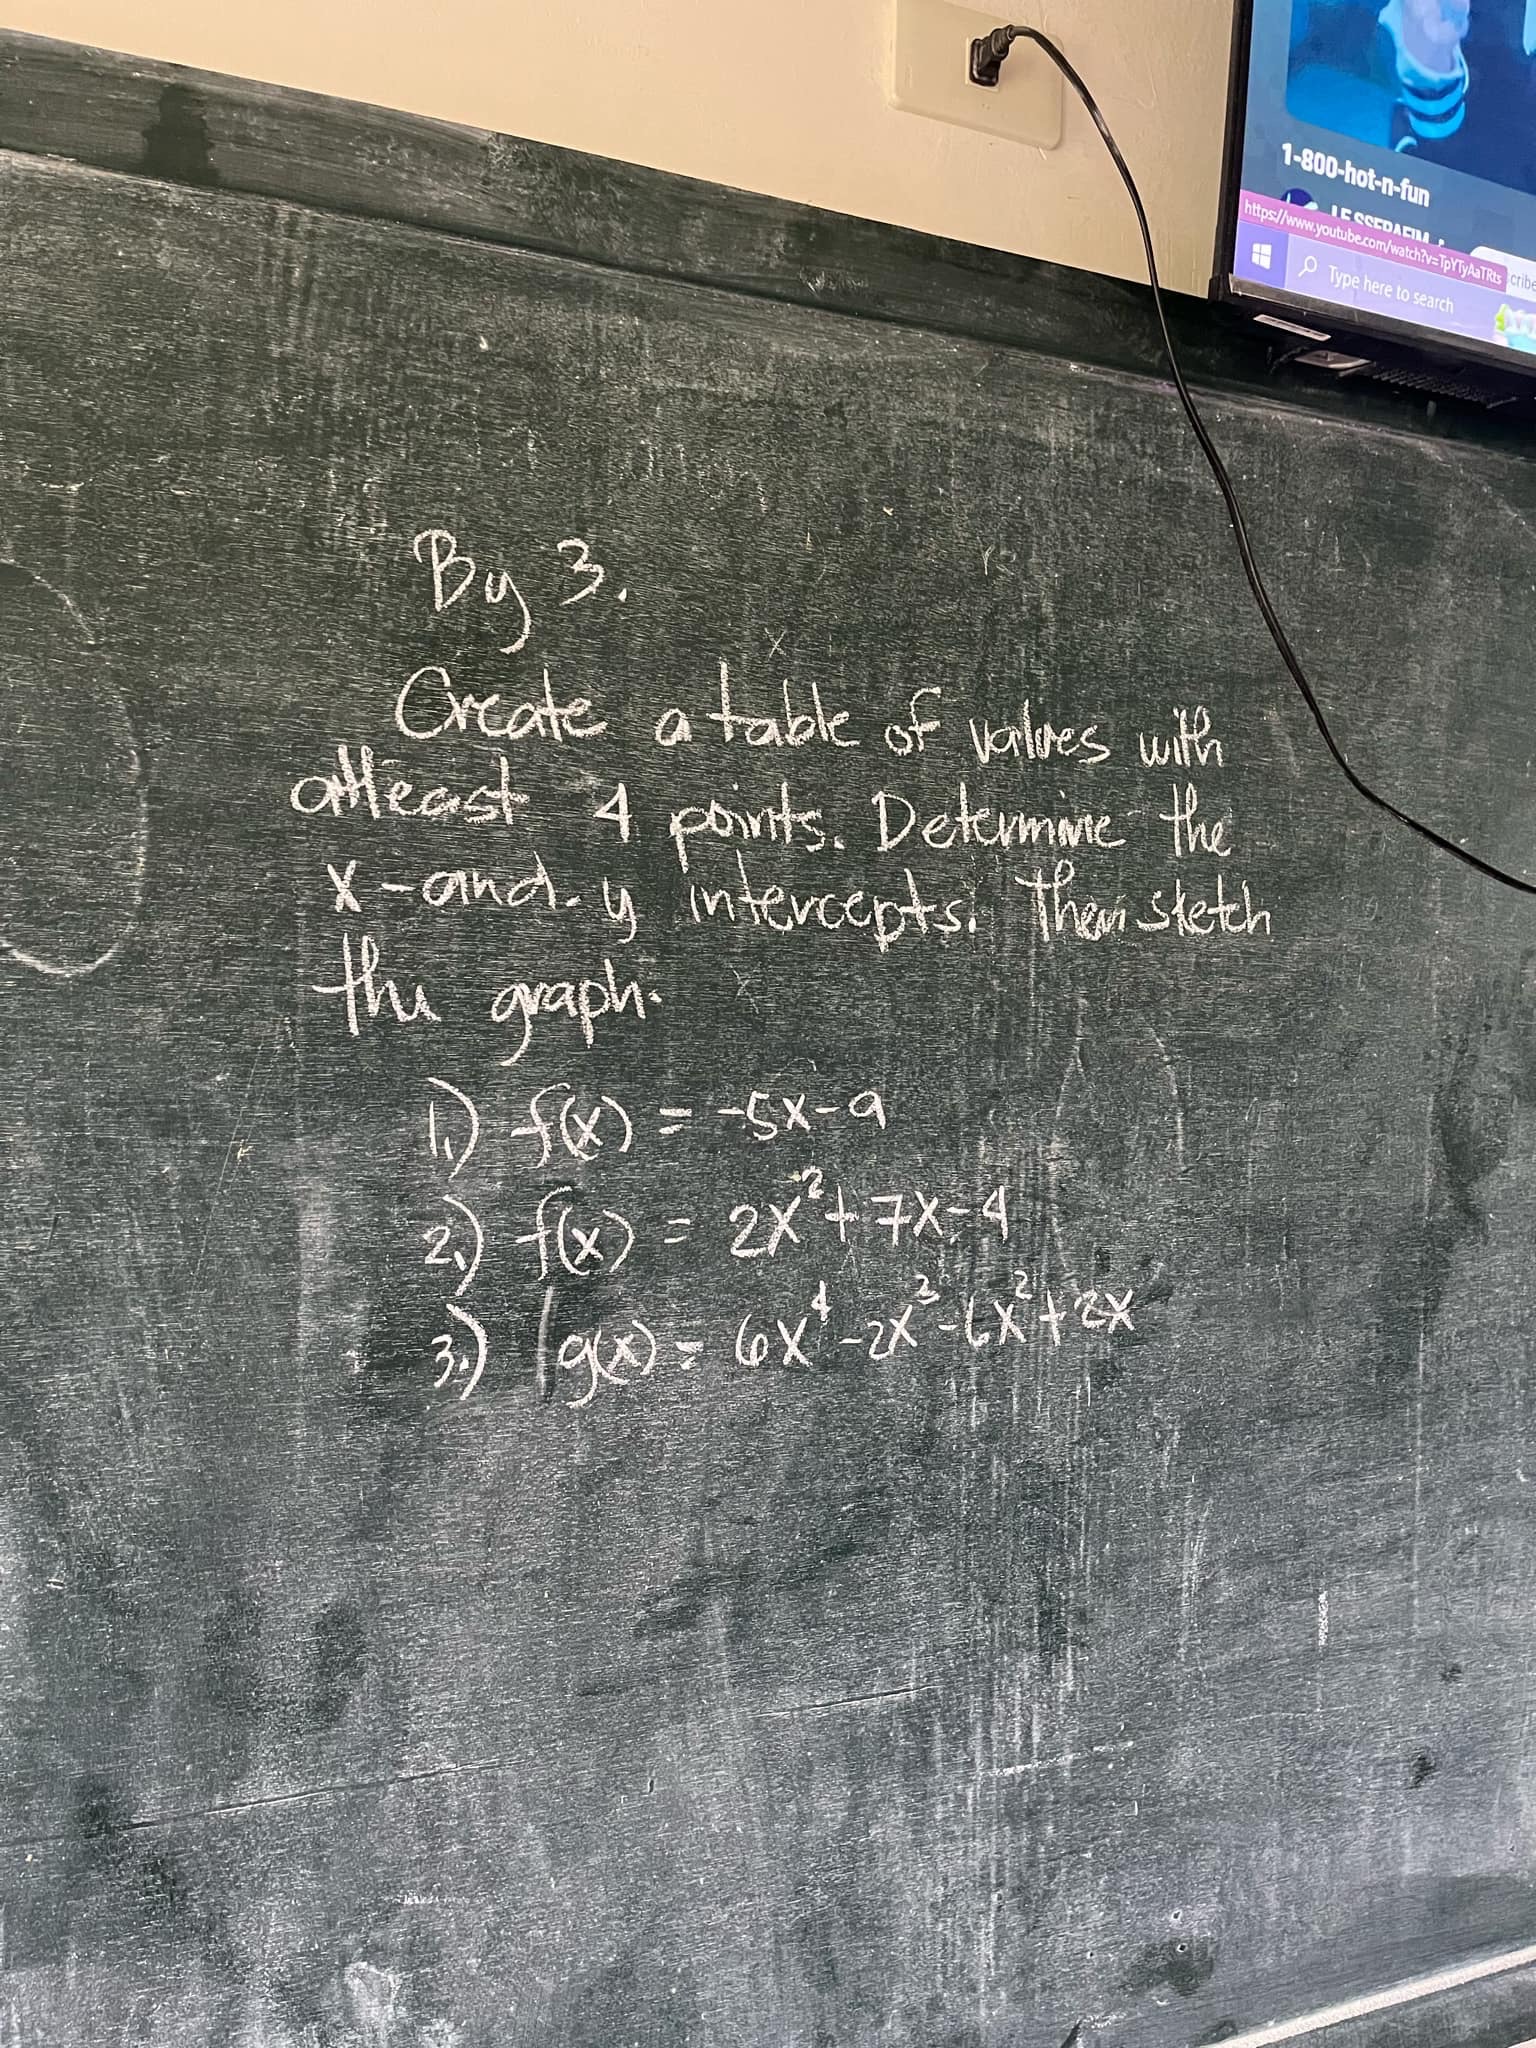 1-800-hot-n-fun
LE SSERAFIM
https://www.youtube.com/watch?v=TpYTyAaTRts
cribe
Type here to search
By 3.
Create a table of values with
atleast 4 points. Determine the
x-and-y intercepts. Then sketch
the graph.
1.) f(x) = -5x-9
2.) f(x) = 2x²+7x-4
3.) g(x) = 6x⁴-2x²-6x²+2x